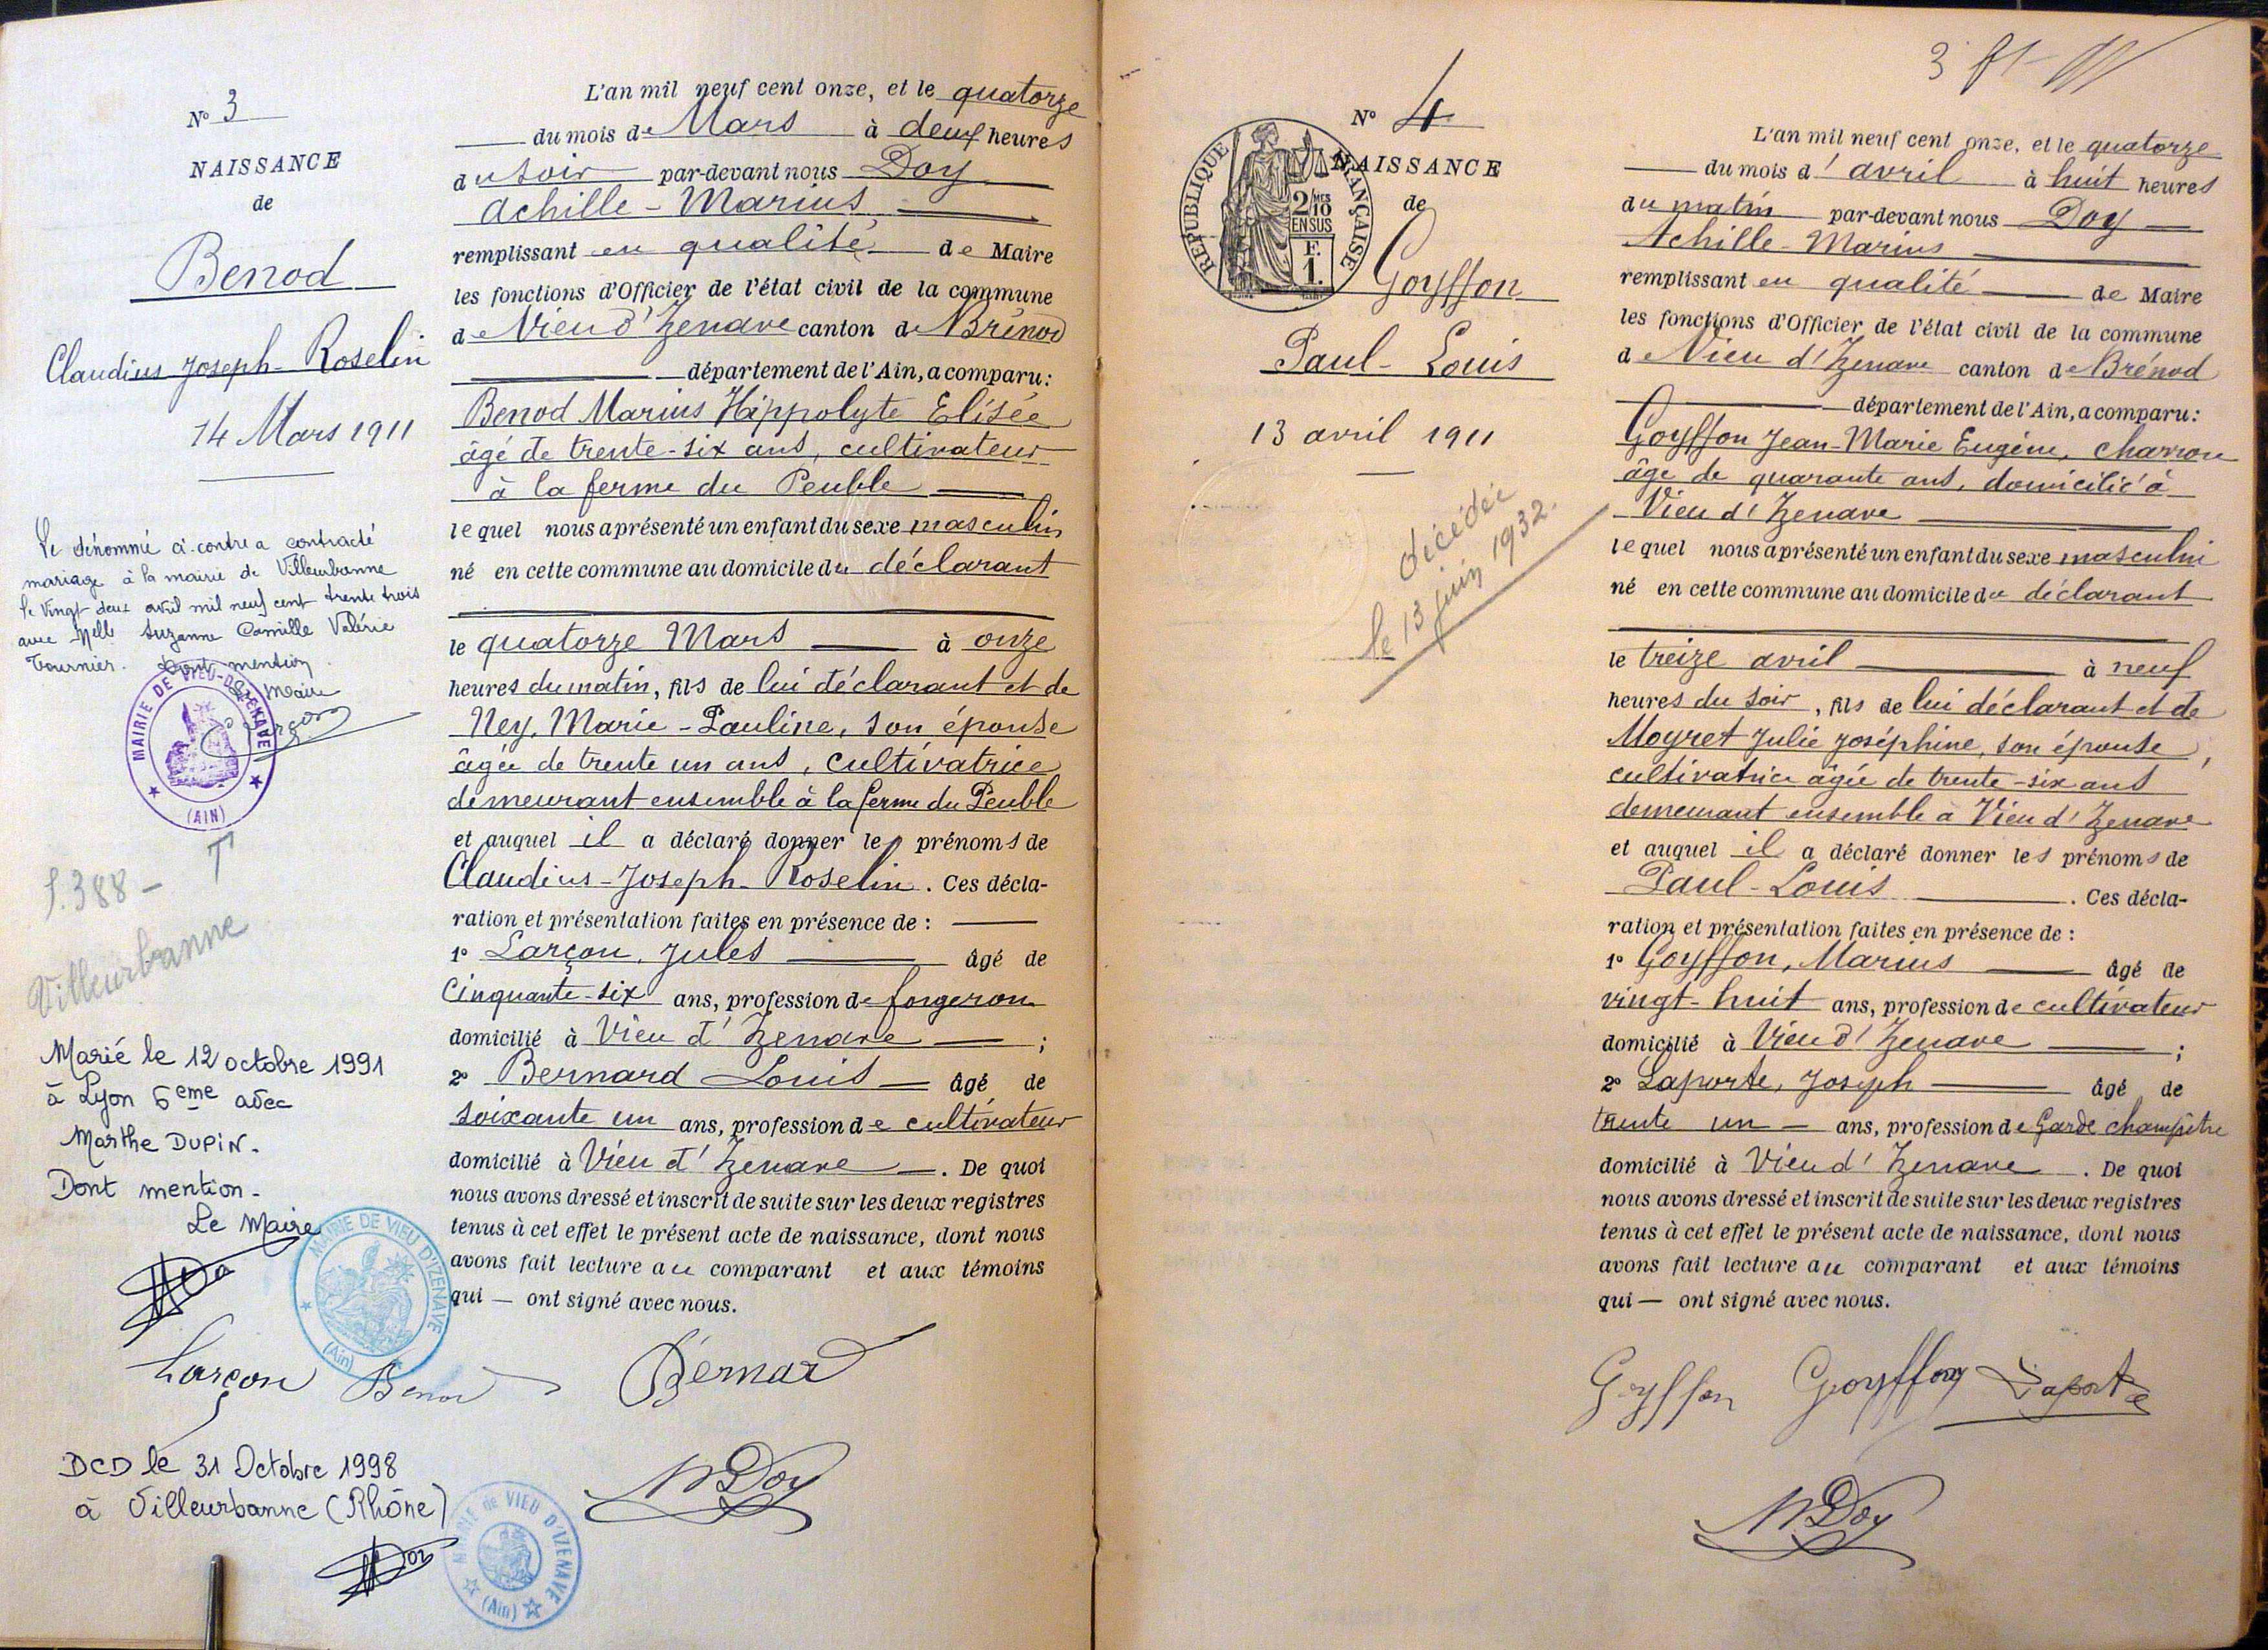 N° 3
NAISSANCE
de
Benod
Claudius Joseph-Roselin
14 Mars 1911
Le dénommé ci-contre a contracté
mariage à la mairie de Villeurbanne
le vingt deux avril mil neuf cent trente trois
avec Melle Suzanne Camille Valérie
Tournier. Dont mention.
Le Maire
MAIRIE DE VIEU-D'IZENAVE
(AIN)
Villeurbanne
Marié le 12 octobre 1991
à Lyon 6eme avec
Marthe DUPIN.
Dont mention.
Le Maire
MAIRIE DE VIEU D'IZENAVE
(Ain)
L'an mil neuf cent onze, et le quatorze
du mois de Mars à deux heures
du soir par-devant nous Doy
Achille-Marius
remplissant en qualité de Maire
les fonctions d'Officier de l'état civil de la commune
de Vieu d'Izenave canton de Brénod
département de l'Ain, a comparu:
Benod Marius Hippolyte Elisée
âgé de trente-six ans, cultivateur
à la ferme du Peuble
lequel nous a présenté un enfant du sexe masculin
né en cette commune au domicile du déclarant
le quatorze Mars à onze
heures du matin, fils de lui déclarant et de
Ney, Marie-Pauline, son épouse
âgée de trente un ans, cultivatrice
demeurant ensemble à la ferme du Peuble
et auquel il a déclaré donner les prénoms de
Claudius-Joseph-Roselin. Ces décla-
ration et présentation faites en présence de :
1° Larçon, Jules âgé de
cinquante-six ans, profession de forgeron
domicilié à Vieu d'Izenave ;
2° Bernard Louis âgé de
soixante un ans, profession de cultivateur
domicilié à Vieu d'Izenave. De quoi
nous avons dressé et inscrit de suite sur les deux registres
tenus à cet effet le présent acte de naissance, dont nous
avons fait lecture au comparant et aux témoins
qui — ont signé avec nous.
Larçon Benod Bernard
DCD le 31 Octobre 1998
à Villeurbanne (Rhône)
MAIRIE de VIEU D'IZENAVE
(Ain)
Doy
N° 4
NAISSANCE
de
RÉPUBLIQUE FRANÇAISE
2/10MES
EN SUS
F.
1.
Goyffon
Paul-Louis
13 avril 1911
décédé
le 13 juin 1932.
L'an mil neuf cent onze, et le quatorze
du mois d'avril à huit heures
du matin par-devant nous Doy
Achille-Marius
remplissant en qualité de Maire
les fonctions d'Officier de l'état civil de la commune
de Vieu d'Izenave canton de Brénod
département de l'Ain, a comparu:
Goyffon Jean-Marie Eugène, charron
âgé de quarante ans, domicilié à
Vieu d'Izenave
lequel nous a présenté un enfant du sexe masculin
né en cette commune au domicile du déclarant
le treize avril à neuf
heures du soir, fils de lui déclarant et de
Moyret Julie Joséphine, son épouse,
cultivatrice âgée de trente-six ans
demeurant ensemble à Vieu d'Izenave
et auquel il a déclaré donner les prénoms de
Paul-Louis. Ces décla-
ration et présentation faites en présence de :
1° Goyffon, Marius âgé de
vingt-huit ans, profession de cultivateur
domicilié à Vieu d'Izenave ;
2° Laporte, Joseph âgé de
trente un ans, profession de Garde champêtre
domicilié à Vieu d'Izenave. De quoi
nous avons dressé et inscrit de suite sur les deux registres
tenus à cet effet le présent acte de naissance, dont nous
avons fait lecture au comparant et aux témoins
qui — ont signé avec nous.
Goyffon Goyffon Laporte
Doy